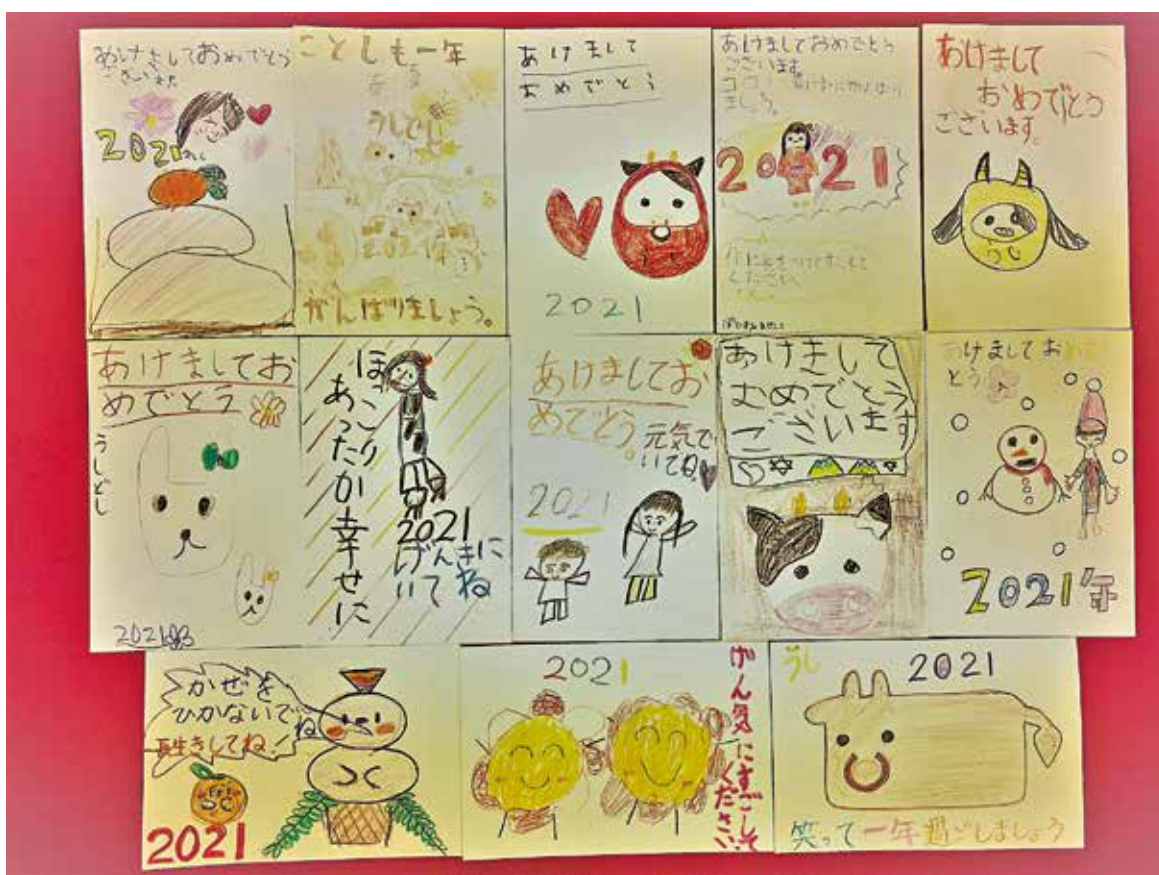 あけましておめでとう
ございます
2021
ことしも一年
うしどし
2021年
がんばりましょう。
あけまして
おめでとう
2021
あけましておめでとう
ございます。
ましょう。
2021
ください
あけまして
おめでとう
ございます。
うし
あけましてお
めでとう
うしどし
2021
ほっこり
あったか
幸せに
2021
げんきに
いてね
あけましてお
めでとう。
元気で
いてね
2021
あけまして
おめでとう
ございます
あけましておめで
とう
2021年
かぜを
ひかないでね
長生きしてね!
2021
2021
げん気にすごして
ください
うし
2021
笑って一年過ごしましょう